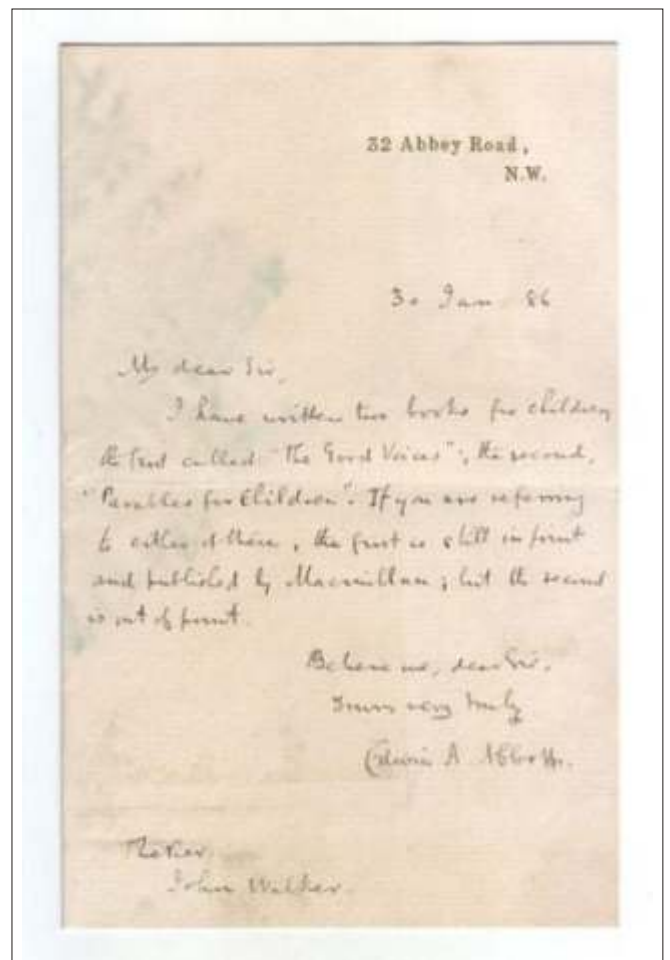 32 Abbey Road,
N.W.
30 Jan 86
My dear Sir,
I have written two books for children
the first called "The Good Voices"; the second,
"Parables for Children". If you are referring
to either of these, the first is still in print
and published by Macmillan; but the second
is out of print.
Believe me, dear Sir,
Yours very truly
Edwin A Abbott.
The Rev.
John Walker.